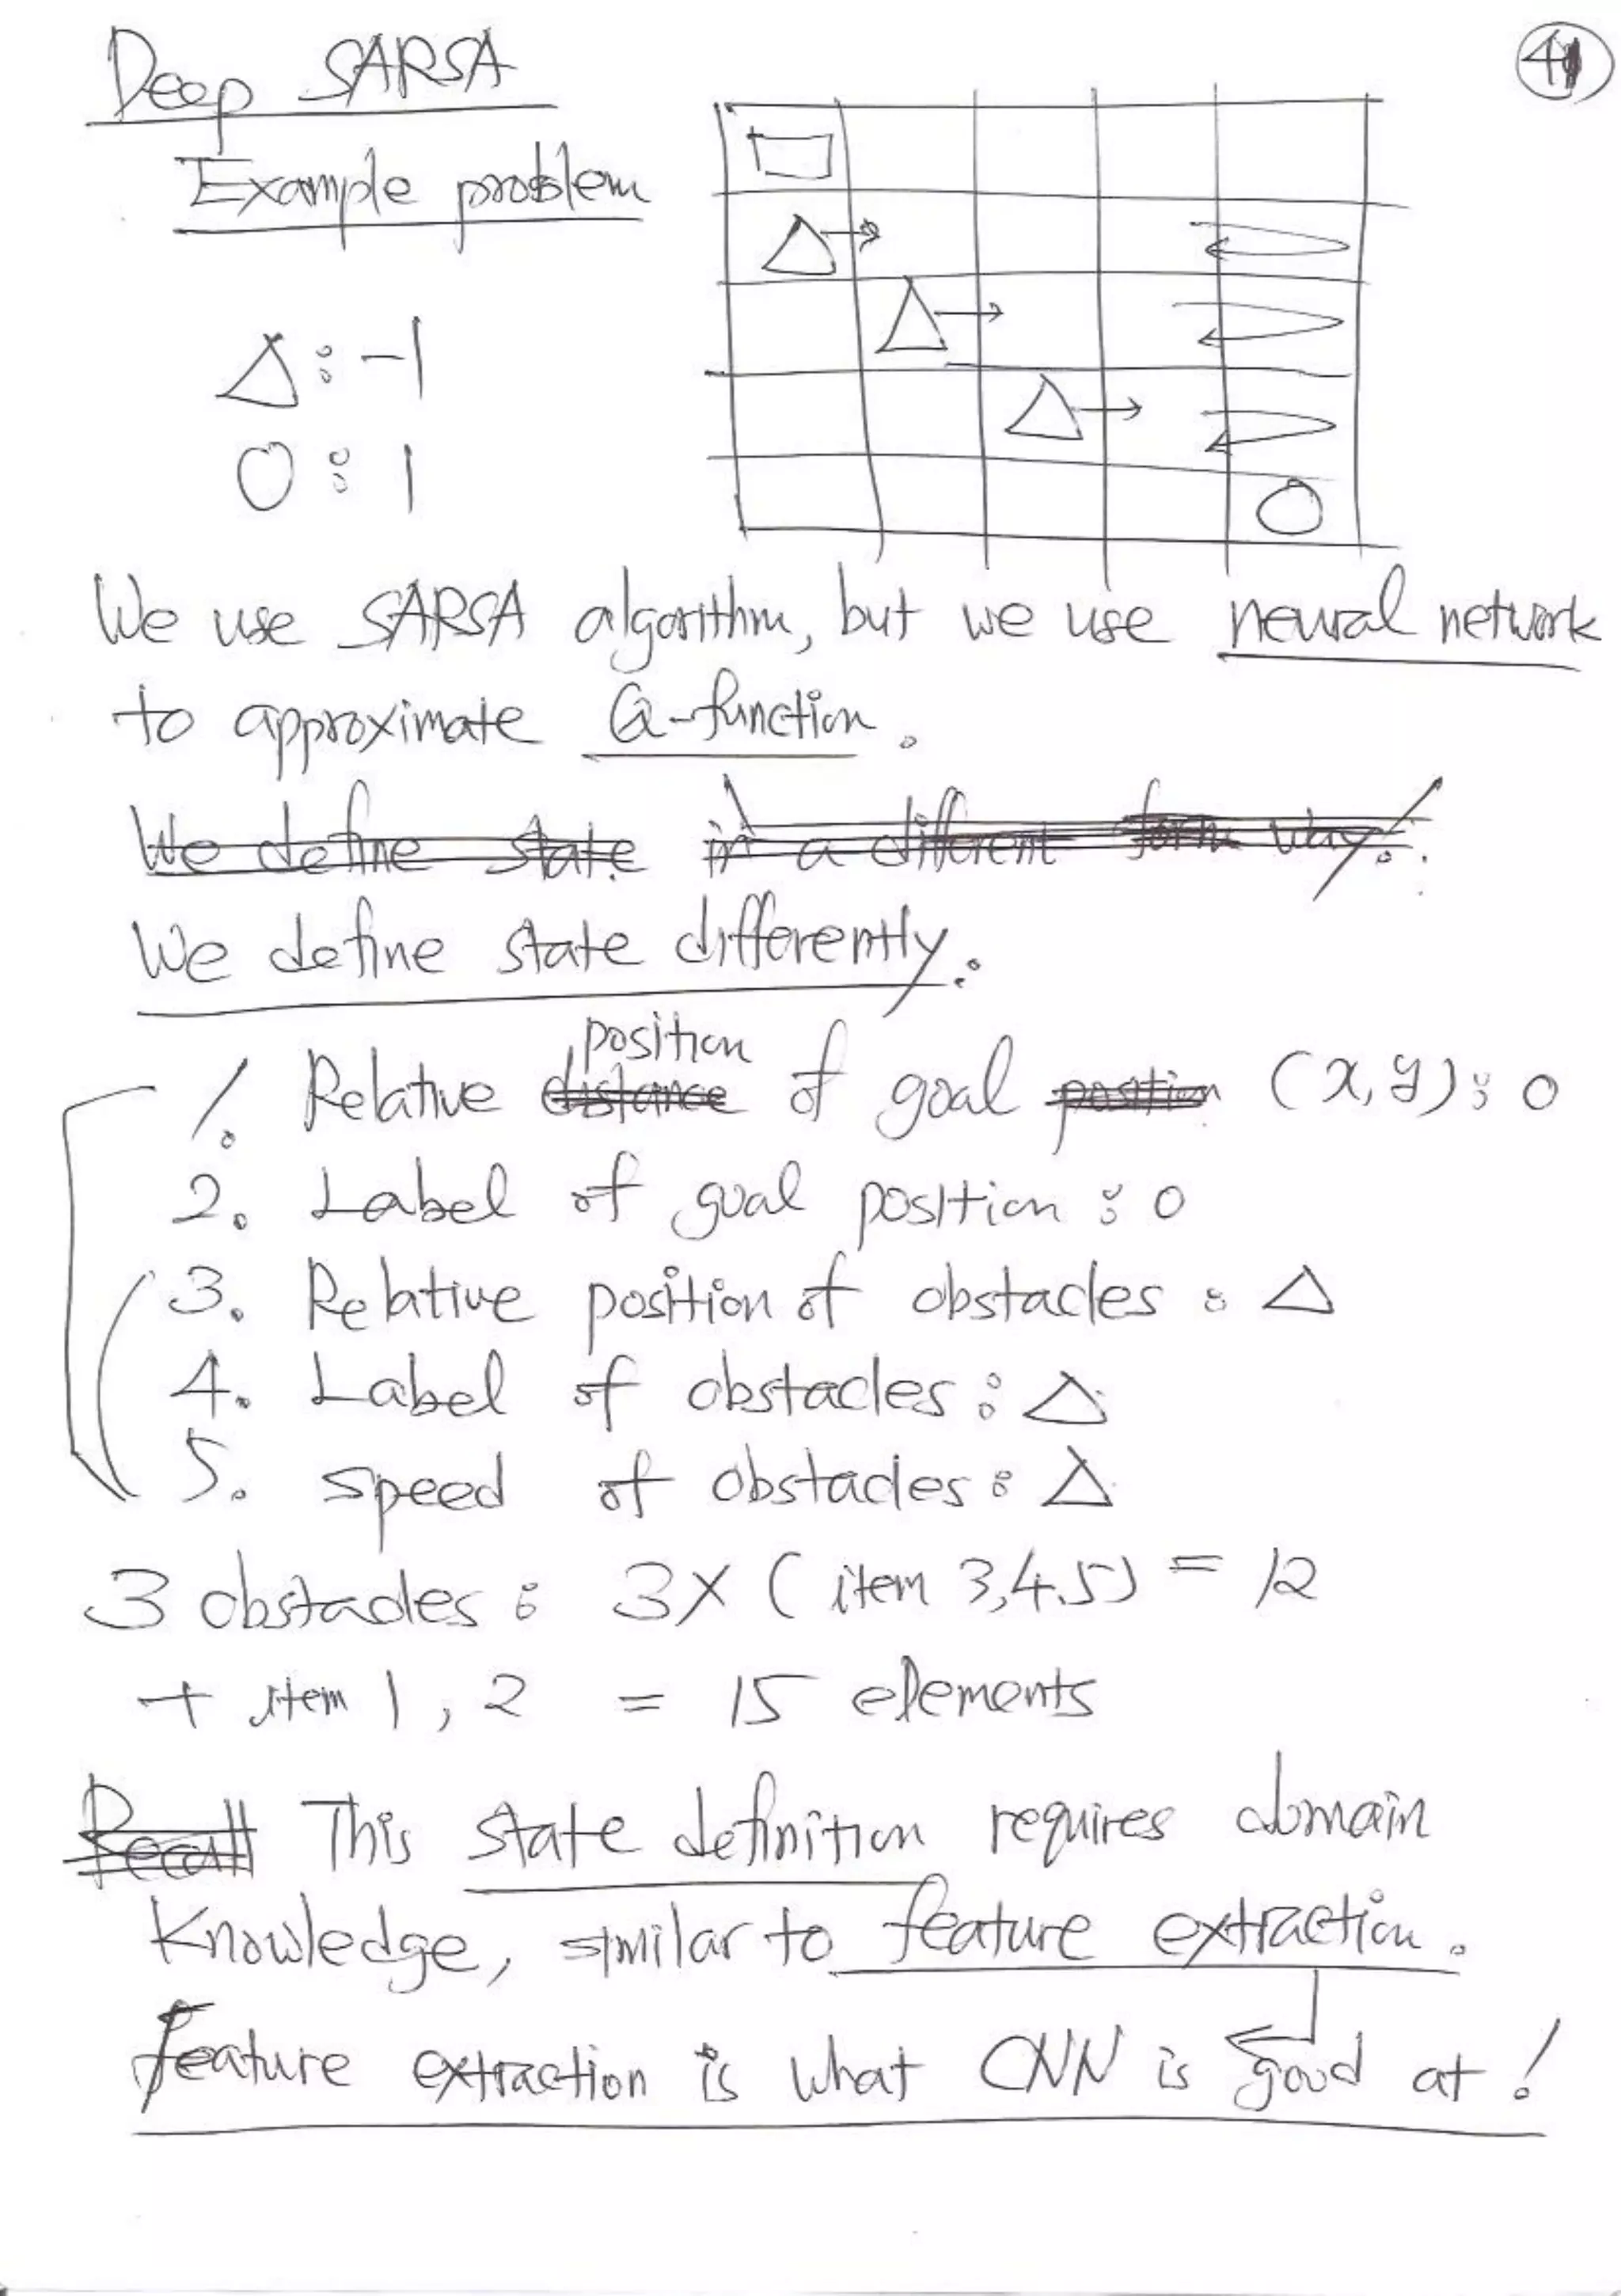 Deep SARSA
41
Example problem
△: -1
O: 1
We use SARSA algorithm, but we use neural network
to approximate Q-function.
We define state in a different form way.
We define state differently.
1. Relative distance position of goal position (x, y): O
2. Label of goal position: O
3. Relative position of obstacles: △
4. Label of obstacles: △
5. speed of obstacles: △
3 obstacles: 3 X (item 3,4.5) = 12
+ item 1, 2 = 15 elements
Recall This state definition requires domain
Knowledge, similar to feature extraction.
Feature extraction is what CNN is good at!